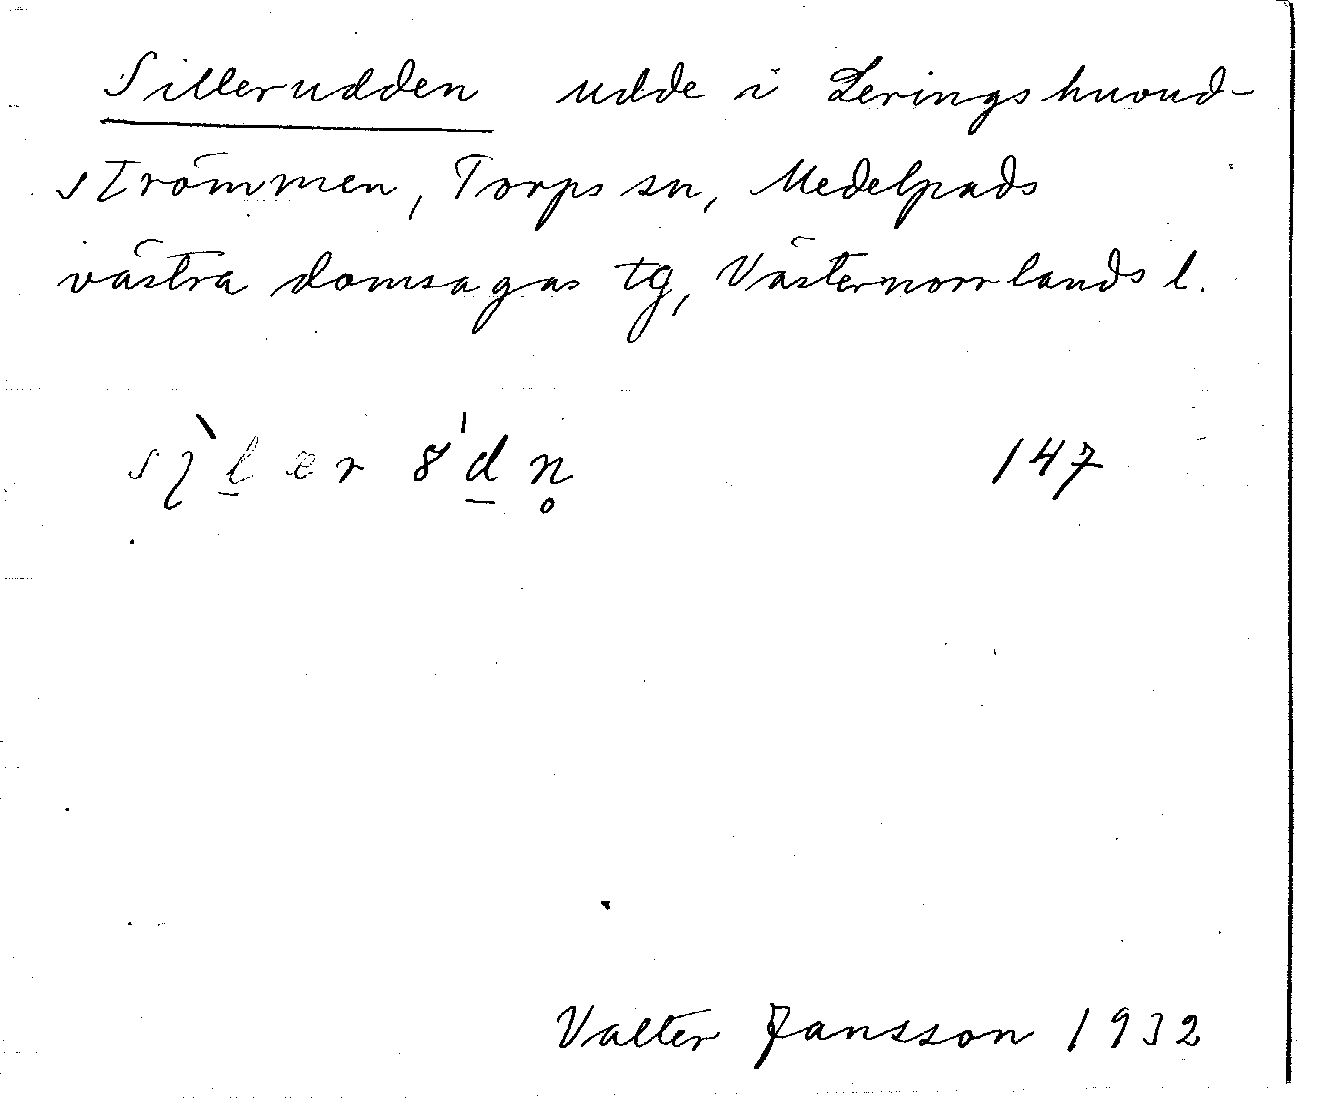 Sillerudden udde i Leringshuvud-
strömmen, Torps sn, Medelpads
västra domsagas tg, Västernorrlands l.
147
Valter Jansson 1932